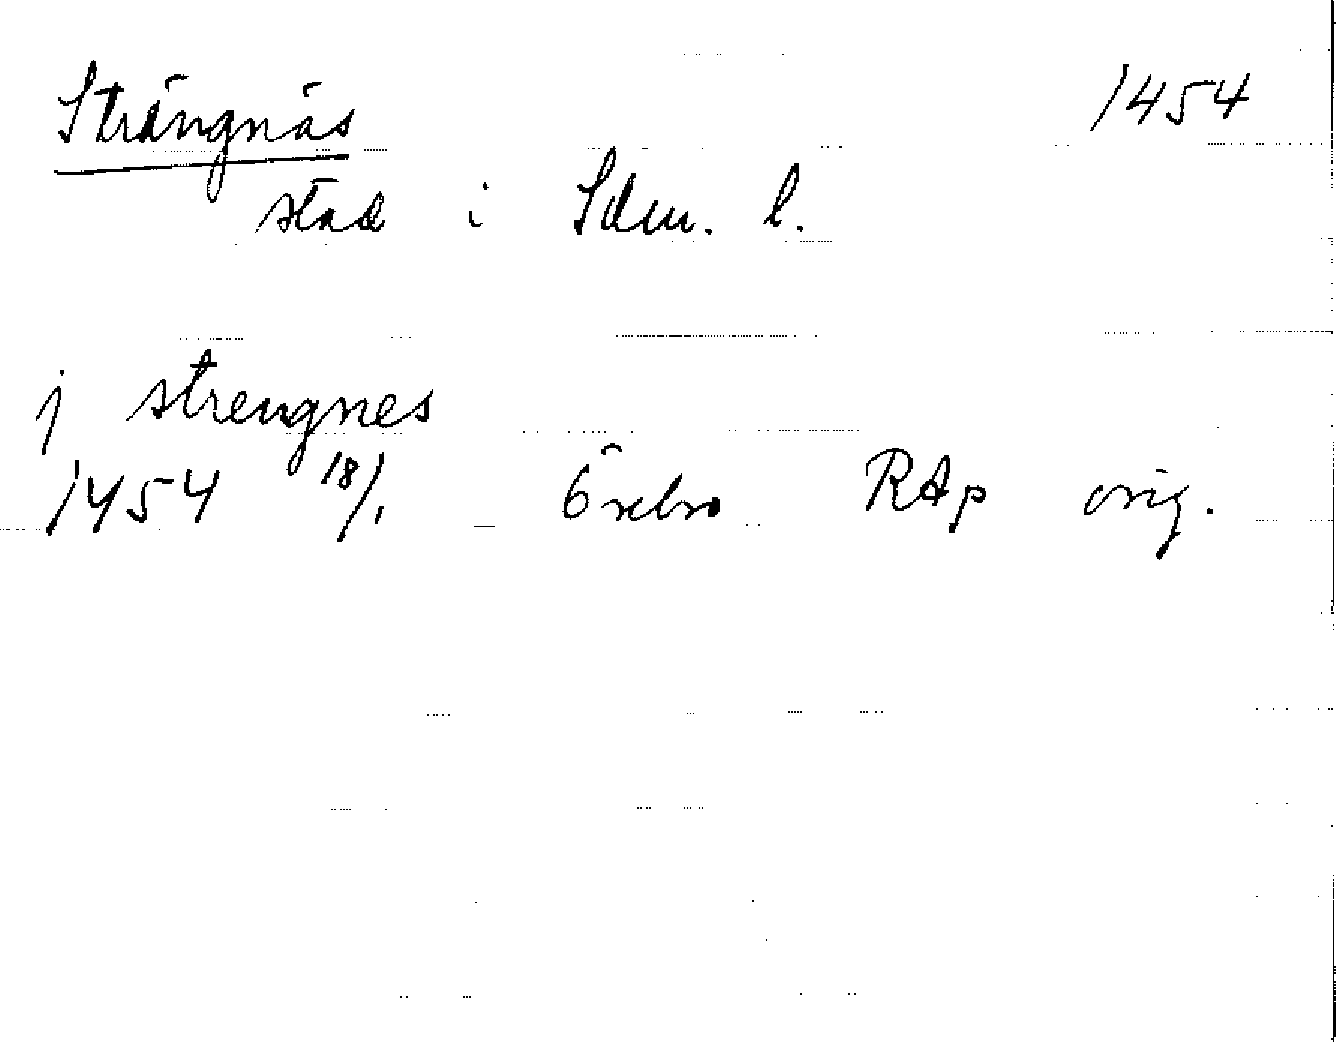 Strängnäs 1454
stad i Sdm. l.
j strengnes
1454 18/1 Örebro RAp orig.